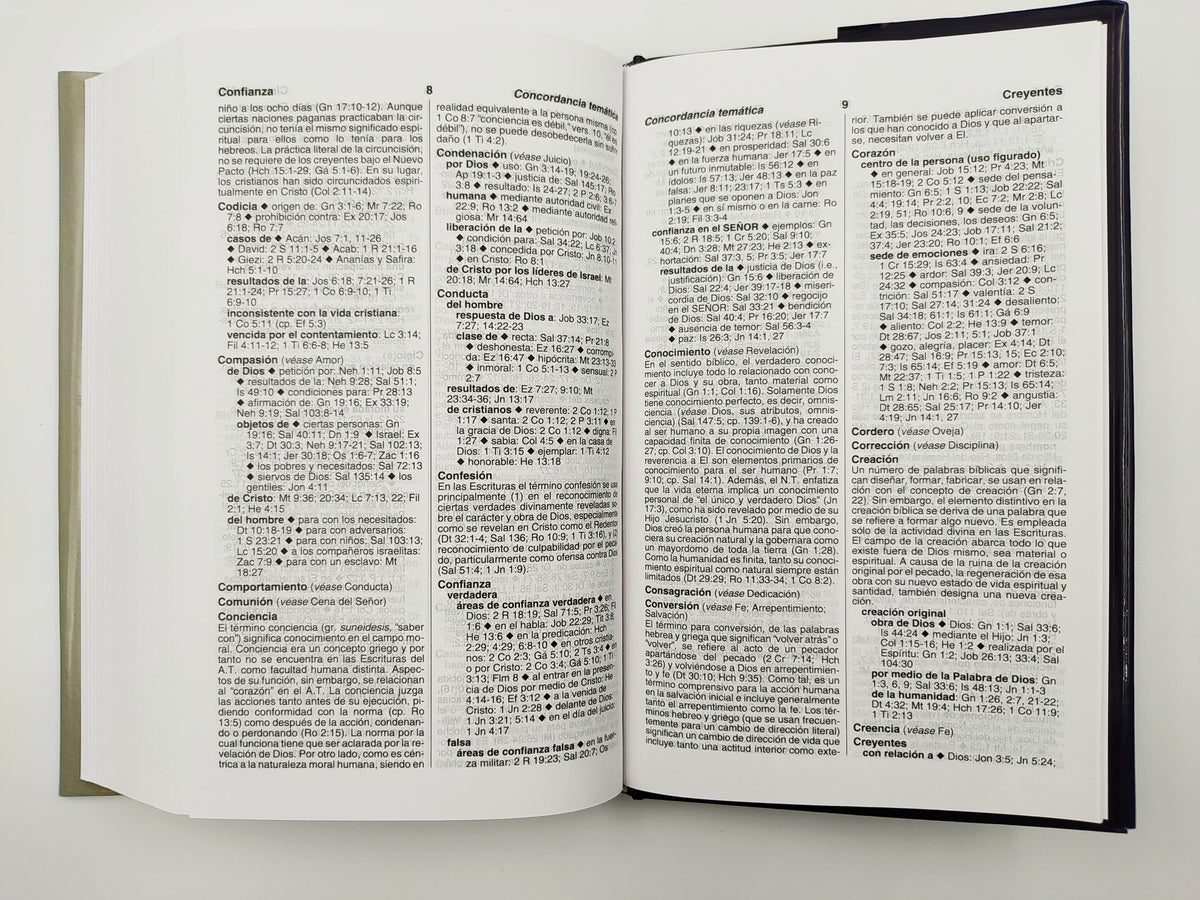 Confianza
8
Concordancia temática
niño a los ocho días (Gn 17:10-12). Aunque
ciertas naciones paganas practicaban la cir-
cuncisión, no tenía el mismo significado espi-
ritual para ellos como lo tenía para los
hebreos. La práctica literal de la circuncisión,
no se requiere de los creyentes bajo el Nuevo
Pacto (Hch 15:1-29; Gá 5:1-6). En su lugar,
los cristianos han sido circuncidados espiri-
tualmente en Cristo (Col 2:11-14).
Codicia ◆ origen de: Gn 3:1-6; Mr 7:22; Ro
7:8 ◆ prohibición contra: Ex 20:17; Jos
6:18; Ro 7:7
casos de ◆ Acán: Jos 7:1, 11-26
◆ David: 2 S 11:1-5 ◆ Acab: 1 R 21:1-16
◆ Giezi: 2 R 5:20-24 ◆ Ananías y Safira:
Hch 5:1-10
resultados de la: Jos 6:18; 7:21-26; 1 R
21:1-24; Pr 15:27; 1 Co 6:9-10; 1 Ti
6:9-10
inconsistente con la vida cristiana:
1 Co 5:11 (cp. Ef 5:3)
vencida por el contentamiento: Lc 3:14;
Fil 4:11-12; 1 Ti 6:6-8; He 13:5
Compasión (véase Amor)
de Dios ◆ petición por: Neh 1:11; Job 8:5
◆ resultados de la: Neh 9:28; Sal 51:1;
Is 49:10 ◆ condiciones para: Pr 28:13
◆ afirmación de: Gn 19:16; Ex 33:19;
Neh 9:19; Sal 103:8-14
objetos de ◆ ciertas personas: Gn
19:16; Sal 40:11; Dn 1:9 ◆ Israel: Ex
3:7; Dt 30:3; Neh 9:17-21; Sal 102:13;
Is 14:1; Jer 30:18; Os 1:6-7; Zac 1:16
◆ los pobres y necesitados: Sal 72:13
◆ siervos de Dios: Sal 135:14 ◆ los
gentiles: Jon 4:11
de Cristo: Mt 9:36; 20:34; Lc 7:13, 22; Fil
2:1; He 4:15
del hombre ◆ para con los necesitados:
Dt 10:18-19 ◆ para con adversarios:
1 S 23:21 ◆ para con niños: Sal 103:13;
Lc 15:20 ◆ a los compañeros israelitas:
Zac 7:9 ◆ para con un esclavo: Mt
18:27
Comportamiento (véase Conducta)
Comunión (véase Cena del Señor)
Conciencia
El término conciencia (gr. suneidesis, “saber
con”) significa conocimiento en el campo mo-
ral. Conciencia era un concepto griego y por
tanto no se encuentra en las Escrituras del
A.T. como facultad humana distinta. Aspec-
tos de su función, sin embargo, se relacionan
al “corazón” en el A.T. La conciencia juzga
las acciones tanto antes de su ejecución, pi-
diendo conformidad con la norma (cp. Ro
13:5) como después de la acción, condenan-
do o perdonando (Ro 2:15). La norma por la
cual funciona tiene que ser aclarada por la re-
velación de Dios. Por otro lado, como es cén-
trica a la naturaleza moral humana, siendo en
realidad equivalente a la persona misma (cp.
1 Co 8:7 “conciencia es débil,” vers. 10, “el es
débil”), no se puede desobedecerla sin sufrir
daño (1 Ti 4:2).
Condenación (véase Juicio)
por Dios ◆ uso: Gn 3:14-19; 19:24-26;
Ap 19:1-3 ◆ justicia de: Sal 145:17; Ro
3:8 ◆ resultado: Is 24-27; 2 P 2:6; 3:6-7
humana ◆ mediante autoridad civil: Ex
22:9; Ro 13:2 ◆ mediante autoridad reli-
giosa: Mr 14:64
liberación de la ◆ petición por: Job 10:2
◆ condición para: Sal 34:22; Lc 6:37; Jn
3:18 ◆ concedida por Cristo: Jn 8:10-11
◆ en Cristo: Ro 8:1
de Cristo por los líderes de Israel: Mt
20:18; Mr 14:64; Hch 13:27
Conducta
del hombre
respuesta de Dios a: Job 33:17; Ez
7:27; 14:22-23
clase de ◆ recta: Sal 37:14; Pr 21:8
◆ deshonesta: Ez 16:27 ◆ corrompi-
da: Ez 16:47 ◆ hipócrita: Mt 23:13-33
◆ inmoral: 1 Co 5:1-13 ◆ sensual: 2 P
2:7
resultados de: Ez 7:27; 9:10; Mt
23:34-36; Jn 13:17
de cristianos ◆ reverente: 2 Co 1:12; 1 P
1:17 ◆ santa: 2 Co 1:12; 2 P 3:11 ◆ en
la gracia de Dios: 2 Co 1:12 ◆ digna: Fil
1:27 ◆ sabia: Col 4:5 ◆ en la casa de
Dios: 1 Ti 3:15 ◆ ejemplar: 1 Ti 4:12
◆ honorable: He 13:18
Confesión
En las Escrituras el término confesión se usa
principalmente (1) en el reconocimiento de
ciertas verdades divinamente reveladas so-
bre el carácter y obra de Dios, especialmente
como se revelan en Cristo como el Redentor
(Dt 32:1-4; Sal 136; Ro 10:9; 1 Ti 3:16), y (2)
reconocimiento de culpabilidad por el peca-
do, particularmente como ofensa contra Dios
(Sal 51:4; 1 Jn 1:9).
Confianza
verdadera
áreas de confianza verdadera ◆ en
Dios: 2 R 18:19; Sal 71:5; Pr 3:26; Fil
1:6 ◆ en el habla: Job 22:29; Tit 3:8;
He 13:6 ◆ en la predicación: Hch
2:29; 4:29; 6:8-10 ◆ en otros cristia-
nos: 2 Co 2:3; Gá 5:10; 2 Ts 3:4 ◆ en
o por Cristo: 2 Co 3:4; Gá 5:10; 1 Ti
3:13; Flm 8 ◆ al entrar en la presen-
cia de Dios por medio de Cristo: He
4:14-16; Ef 3:12 ◆ a la venida de
Cristo: 1 Jn 2:28 ◆ delante de Dios:
1 Jn 3:21; 5:14 ◆ en el día del juicio:
1 Jn 4:17
falsa
áreas de confianza falsa ◆ en la fuer-
za militar: 2 R 19:23; Sal 20:7; Os
Concordancia temática
9
Creyentes
10:13 ◆ en las riquezas (véase Ri-
quezas): Job 31:24; Pr 18:11; Lc
12:19-21 ◆ en prosperidad: Sal 30:6
◆ en la fuerza humana: Jer 17:5 ◆ en
un futuro inmutable: Is 56:12 ◆ en
ídolos: Is 57:13; Jer 48:13 ◆ en la paz
falsa: Jer 8:11; 23:17; 1 Ts 5:3 ◆ en
planes que se oponen a Dios: Jon
1:3-5 ◆ en sí mismo o en la carne: Ro
2:19; Fil 3:3-4
confianza en el SEÑOR ◆ ejemplos: Gn
15:6; 2 R 18:5; 1 Cr 5:20; Sal 9:10;
40:4; Dn 3:28; Mt 27:23; He 2:13 ◆ ex-
hortación: Sal 37:3, 5; Pr 3:5; Jer 17:7
resultados de la ◆ justicia de Dios (i.e.,
justificación): Gn 15:6 ◆ liberación de
Dios: Sal 22:4; Jer 39:17-18 ◆ miseri-
cordia de Dios: Sal 32:10 ◆ regocijo
en el SEÑOR: Sal 33:21 ◆ bendición
de Dios: Sal 40:4; Pr 16:20; Jer 17:7
◆ ausencia de temor: Sal 56:3-4
◆ paz: Is 26:3; Jn 14:1, 27
Conocimiento (véase Revelación)
En el sentido bíblico, el verdadero conoci-
miento incluye todo lo relacionado con cono-
cer a Dios y su obra, tanto material como
espiritual (Gn 1:1; Col 1:16). Solamente Dios
tiene conocimiento perfecto, es decir, omnis-
ciencia (véase Dios, sus atributos, omnis-
ciencia) (Sal 147:5; cp. 139:1-6), y ha creado
al ser humano a su propia imagen con una
capacidad finita de conocimiento (Gn 1:26-
27; cp. Col 3:10). El conocimiento de Dios y la
reverencia a El son elementos primarios de
conocimiento para el ser humano (Pr 1:7;
9:10; cp. Sal 14:1). Además, el N.T. enfatiza
que la vida eterna implica un conocimiento
personal de “el único y verdadero Dios” (Jn
17:3), como ha sido revelado por medio de su
Hijo Jesucristo (1 Jn 5:20). Sin embargo,
Dios creó la persona humana para que cono-
ciera su creación natural y la gobernara como
un mayordomo de toda la tierra (Gn 1:28).
Como la humanidad es finita, tanto su conoci-
miento espiritual como natural siempre están
limitados (Dt 29:29; Ro 11:33-34; 1 Co 8:2).
Consagración (véase Dedicación)
Conversión (véase Fe; Arrepentimiento;
Salvación)
El término para conversión, de las palabras
hebrea y griega que significan “volver atrás” o
“volver”, se refiere al acto de un pecador
apartándose del pecado (2 Cr 7:14; Hch
3:26) y volviéndose a Dios en arrepentimien-
to y fe (Dt 30:10; Hch 9:35). Como tal, es un
término comprensivo para la acción humana
en la salvación inicial e incluye generalmente
tanto el arrepentimiento como la fe. Los tér-
minos hebreo y griego (que se usan frecuen-
temente para un cambio de dirección literal)
significan un cambio de dirección de vida que
incluye tanto una actitud interior como exte-
rior. También se puede aplicar conversión a
los que han conocido a Dios y que al apartar-
se, necesitan volver a El.
Corazón
centro de la persona (uso figurado)
◆ en general: Job 15:12; Pr 4:23; Mt
15:18-19; 2 Co 5:12 ◆ sede del pensa-
miento: Gn 6:5; 1 S 1:13; Job 22:22; Sal
4:4; 19:14; Pr 2:2, 10; Ec 7:2; Mr 2:8; Lc
2:19, 51; Ro 10:6, 9 ◆ sede de la volun-
tad, las decisiones, los deseos: Gn 6:5;
Ex 35:5; Jos 24:23; Job 17:11; Sal 21:2;
37:4; Jer 23:20; Ro 10:1; Ef 6:6
sede de emociones ◆ ira: 2 S 6:16;
1 Cr 15:29; Is 63:4 ◆ ansiedad: Pr
12:25 ◆ ardor: Sal 39:3; Jer 20:9; Lc
24:32 ◆ compasión: Col 3:12 ◆ con-
trición: Sal 51:17 ◆ valentía: 2 S
17:10; Sal 27:14; 31:24 ◆ desaliento:
Sal 34:18; 61:1; Is 61:1; Gá 6:9
◆ aliento: Col 2:2; He 13:9 ◆ temor:
Dt 28:67; Jos 2:11; 5:1; Job 37:1
◆ gozo, alegría, placer: Ex 4:14; Dt
28:47; Sal 16:9; Pr 15:13, 15; Ec 2:10;
Is 65:14; Ef 5:19 ◆ amor: Dt 6:5;
Mt 22:37; 1 Ti 1:5; 1 P 1:22 ◆ tristeza:
1 S 1:8; Neh 2:2; Pr 15:13; Is 65:14;
Lm 2:11; Jn 16:6; Ro 9:2 ◆ angustia:
Dt 28:65; Sal 25:17; Pr 14:10; Jer
4:19; Jn 14:1, 27
Cordero (véase Oveja)
Corrección (véase Disciplina)
Creación
Un número de palabras bíblicas que signifi-
can diseñar, formar, fabricar, se usan en rela-
ción con el concepto de creación (Gn 2:7,
22). Sin embargo, el elemento distintivo en la
creación bíblica se deriva de una palabra que
se refiere a formar algo nuevo. Es empleada
sólo de la actividad divina en las Escrituras.
El campo de la creación abarca todo lo que
existe fuera de Dios mismo, sea material o
espiritual. A causa de la ruina de la creación
original por el pecado, la regeneración de esa
obra con su nuevo estado de vida espiritual y
santidad, también designa una nueva crea-
ción.
creación original
obra de Dios ◆ Dios: Gn 1:1; Sal 33:6;
Is 44:24 ◆ mediante el Hijo: Jn 1:3;
Col 1:15-16; He 1:2 ◆ realizada por el
Espíritu: Gn 1:2; Job 26:13; 33:4; Sal
104:30
por medio de la Palabra de Dios: Gn
1:3, 6, 9; Sal 33:6; Is 48:13; Jn 1:1-3
de la humanidad: Gn 1:26; 2:7, 21-22;
Dt 4:32; Mt 19:4; Hch 17:26; 1 Co 11:9;
1 Ti 2:13
Creencia (véase Fe)
Creyentes
con relación a ◆ Dios: Jon 3:5; Jn 5:24;